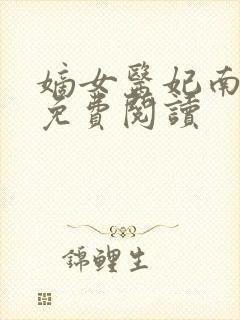 嫡女醫妃南
免費閱讀
錦鯉生